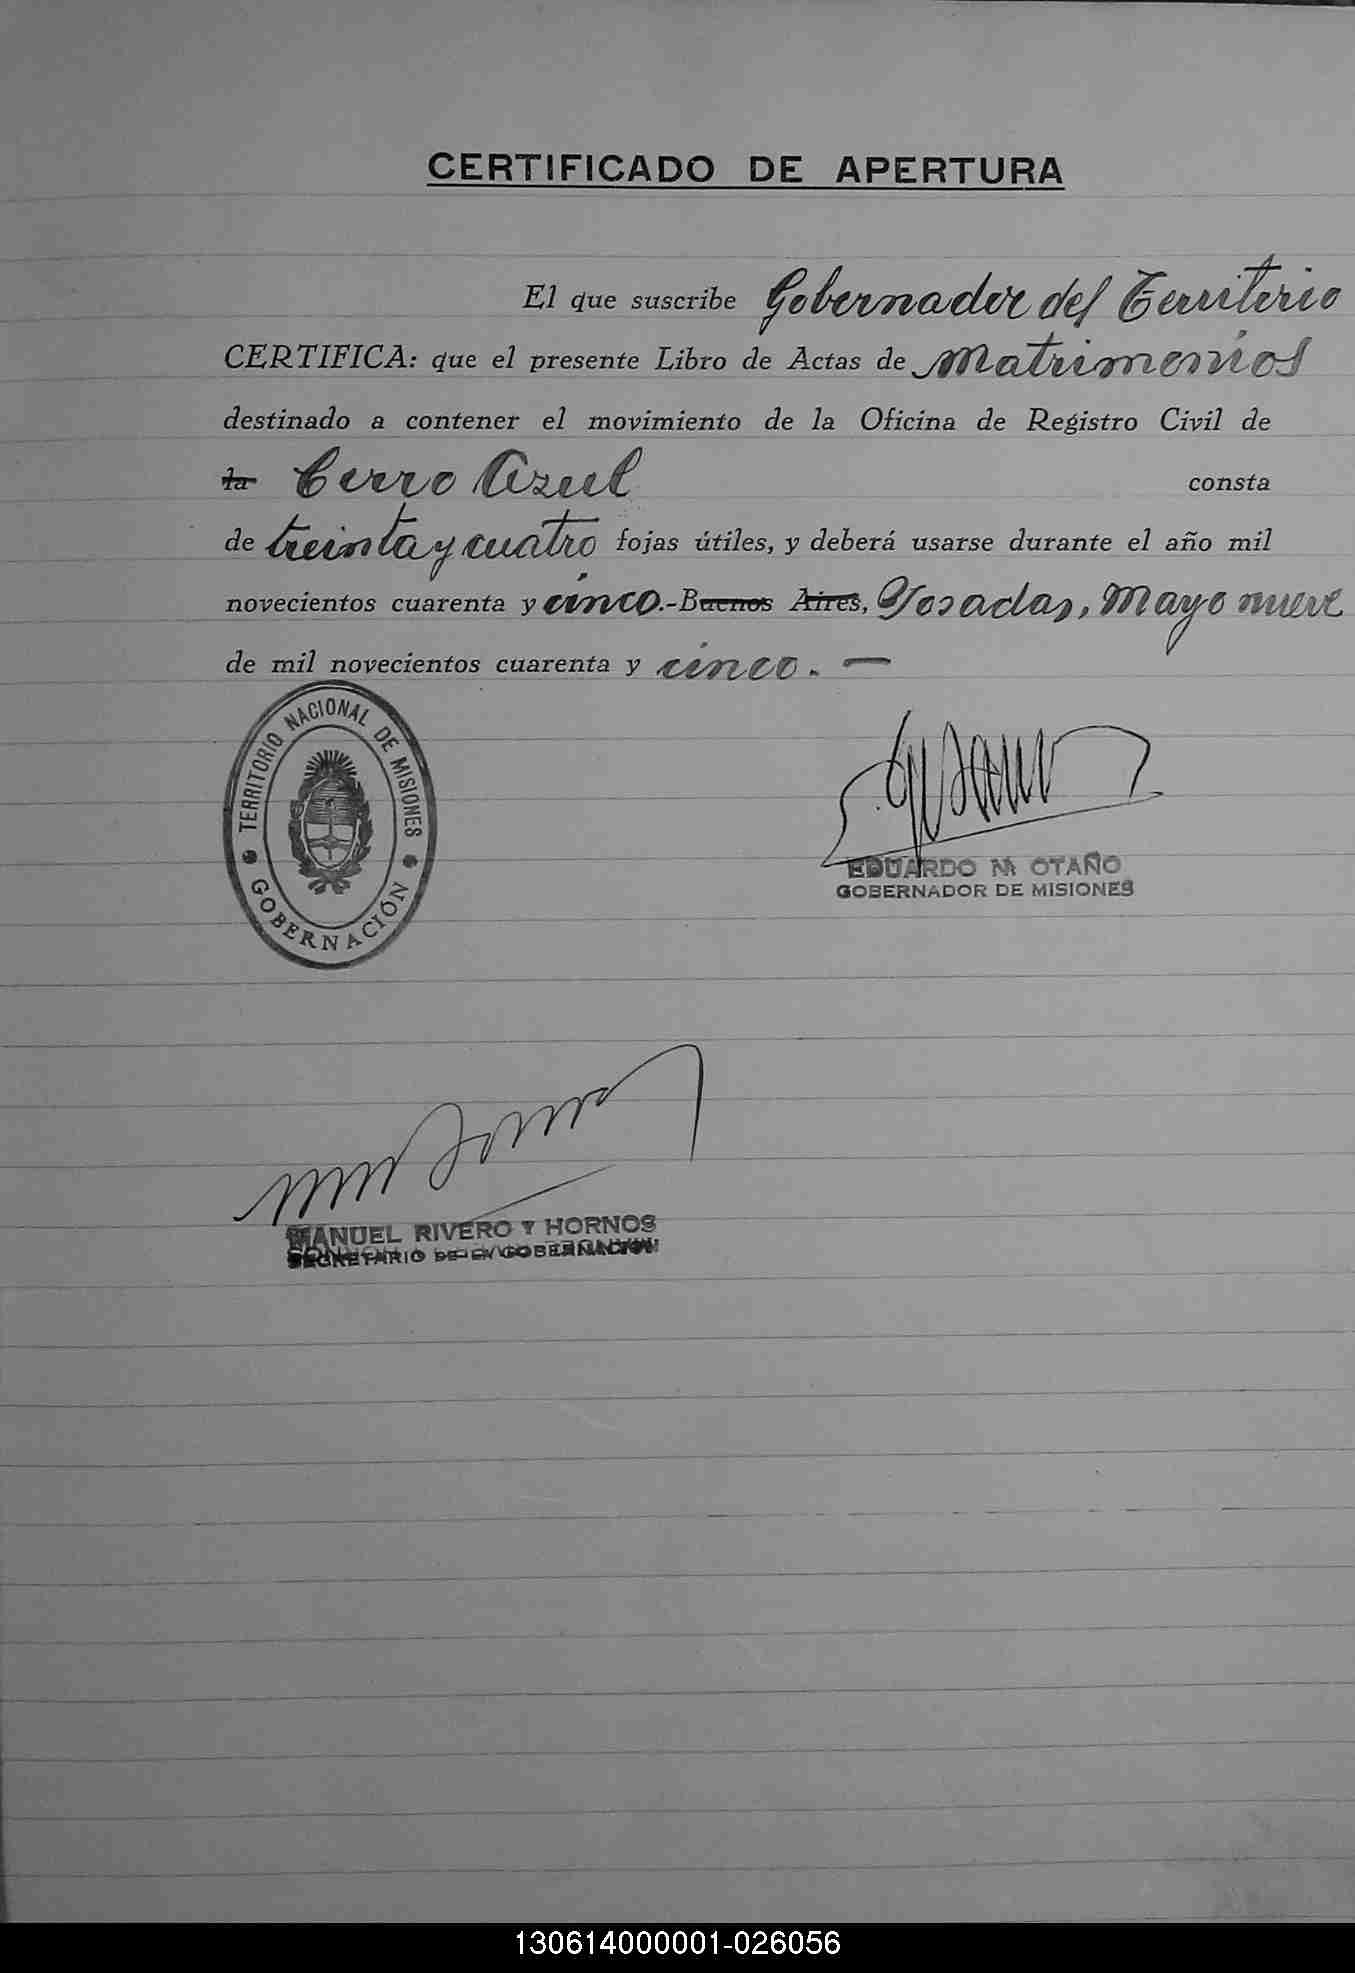 CERTIFICADO DE APERTURA
El que suscribe Gobernador del Territorio
CERTIFICA: que el presente Libro de Actas de Matrimonios
destinado a contener el movimiento de la Oficina de Registro Civil de
la Cerro Azul consta
de treinta y cuatro fojas útiles, y deberá usarse durante el año mil
novecientos cuarenta y cinco.-Buenos Aires, Posadas, Mayo nueve
de mil novecientos cuarenta y cinco. —
TERRITORIO NACIONAL DE MISIONES
GOBERNACIÓN
EDUARDO M OTAÑO
GOBERNADOR DE MISIONES
MANUEL RIVERO Y HORNOS
SECRETARIO DE GOBERNACION
130614000001-026056